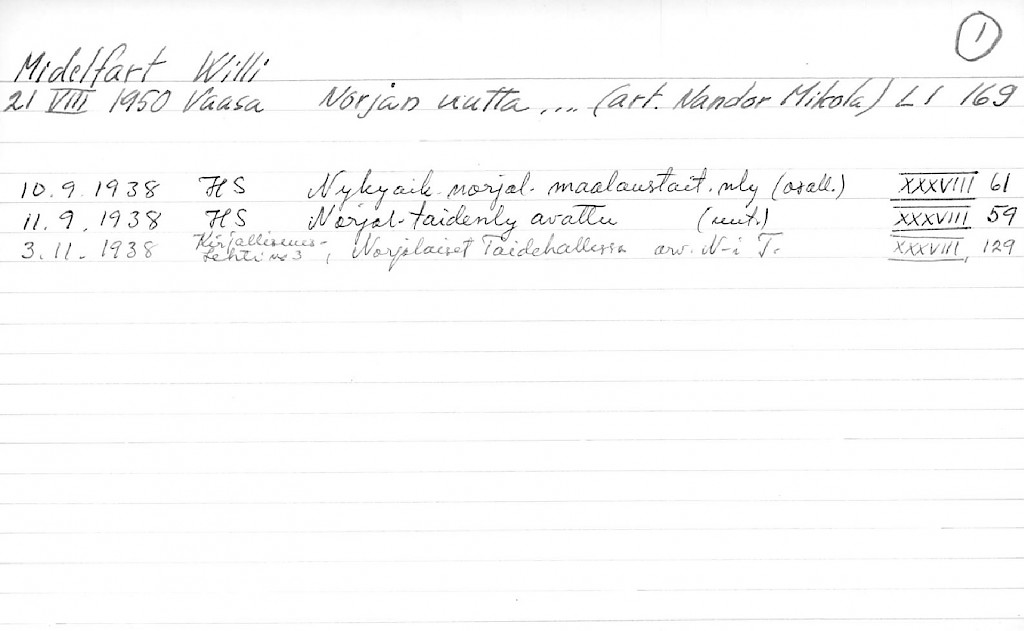 1
Midelfart Willi
21 VIII 1950 Vaasa Norjan uutta ... (art. Nandor Mikola) LI 169
10.9.1938 HS Nykyaik. norjal. maalaustait. nly (osall.) XXXVIII 61
11.9.1938 HS Norjal. taidenly avattu (uut.) XXXVIII 59
3.11.1938 Kirjallisuus-
lehti no 3, Norjalaiset Taidehallissa arv. N-i T. XXXVIII, 129